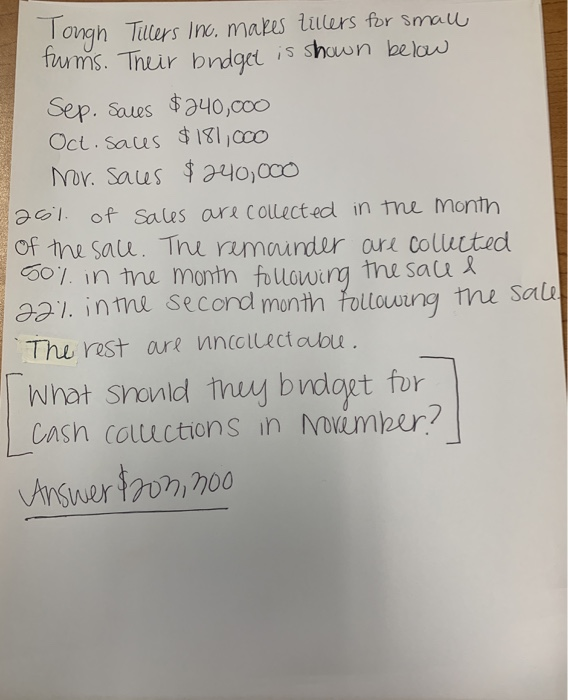 Tough Tillers Inc. makes tillers for small
farms. Their budget is shown below
Sep. Sales $240,000
Oct. Sales $181,000
Nov. Sales $240,000
25% of sales are collected in the month
of the sale. The remainder are collected
50% in the month following the sale &
22% in the second month following the sale.
The rest are uncollectable.
[What should they budget for
cash collections in November?]
Answer $203,300